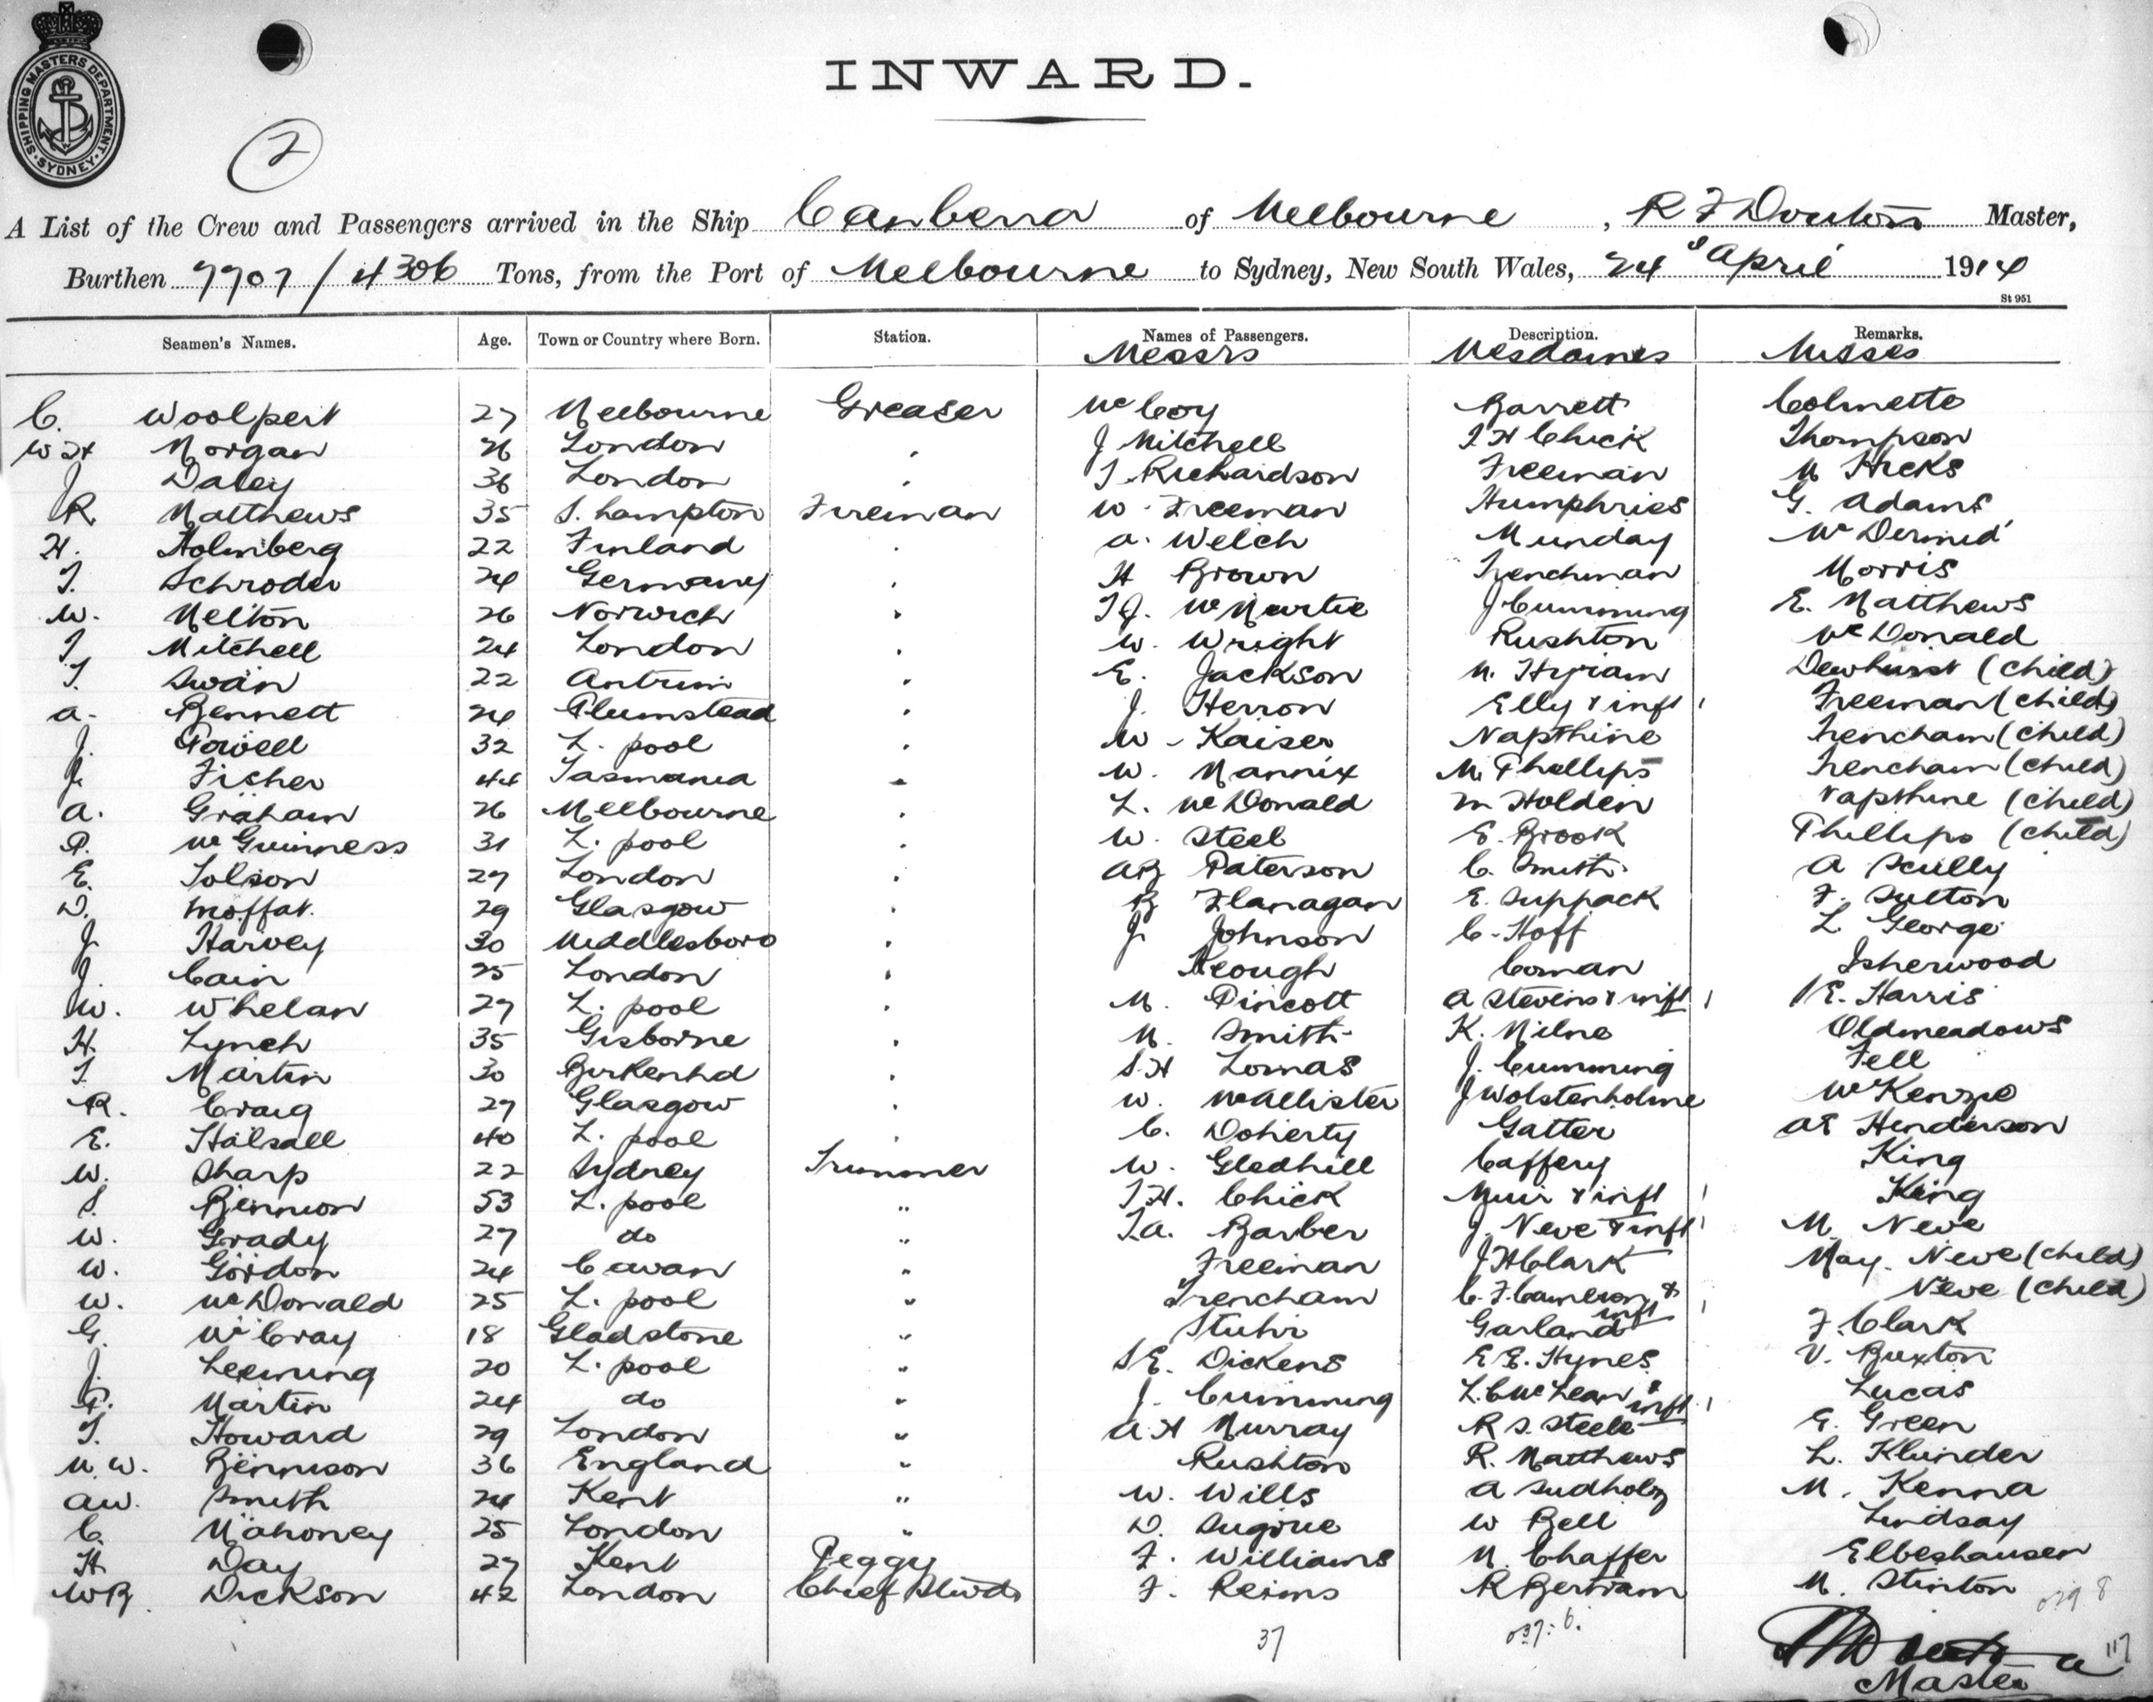 SHIPPING MASTERS DEPARTMENT. SYDNEY
INWARD.
2
A List of the Crew and Passengers arrived in the Ship Canberra of Melbourne, R F Master,
Burthen 7707/4306 Tons, from the Port of Melbourne to Sydney, New South Wales, 24 April 1914
St 951
Seamen's Names. Age. Town or Country where Born. Station. Names of Passengers. Description. Remarks.
Messrs Mesdames Misses
C. Woolpert 27 Melbourne Greaser McCoy Barrett Colmette
W H Morgan 26 London " J Mitchell T H Chick Thompson
J Daley 36 London " T. Richardson Freeman M Hicks
R Matthews 35 S. hampton Fireman W. Freeman Humphries G. Adams
H. Holmberg 22 Finland " A. Welch Munday McDermid
T. Schroder 24 Germany " H Brown Trenchman Morris
W. Melton 26 Norwich " T J. J Cumming E. Matthews
T Mitchell 24 London " W. Wright Rushton McDonald
T. Swan 22 Antrim " E. Jackson M. Hyriam Dewhurst (child)
A. Bennett 24 Plumstead " J. Herron Elly & inft 1 Freeman (child)
J. Powell 32 L. pool " W. Kaiser Napthine Trencham (child)
J. Fisher 44 Tasmania " W. Mannix M. Phillips Trencham (child)
A. Graham 26 Melbourne " L. McDonald M Holden Napthine (child)
P. McGuinness 31 L. pool " W. Steel E. Brook Phillips (child)
E. Tolson 27 London " AB Paterson C. Smith A Scully
D. Moffat. 29 Glasgow " B Flanagan E. Suppack F. Sutton
J. Harvey 30 Middlesboro " J. Johnson C. Hoff L George
J. Cain 25 London " Keough Coman Isherwood
W. Whelan 27 L. pool " M. Pincott A Stevens & inft 1 E. Harris
H. Lynch 35 Gisborne " M. Smith K. Milne Oldmeadows
T. Martin 30 Birkenhd " S H Lomas J. Cumming Fell
R. Craig 27 Glasgow " W. McAllister J Wolstenholme McKenzie
E. Halsall 40 L. pool " C. Doherty Gatter AE Henderson
W. Sharp 22 Sydney Trimmer W. Gledhill Caffery King
S. Bennion 53 L. pool " T H. Chick Muir & inft 1 King
W. Grady 27 do " T.A. Barber J. Neve & inft 1 M. Neve
W. Gordon 24 Cavan " Freeman J H Clark May. Neve (child)
W. McDonald 25 L. pool " Trencham C. F. Cameron & inft 1 Neve (child)
G. McCray 18 Gladstone " Stuhr Garland F. Clark
J. Leeming 20 L. pool " S E. Dickens E E. Hynes V. Buxton
P. Martin 24 do " J. Cumming L. C McLean & inft 1 Lucas
T. Howard 29 London " A. H Murray R S. Steele G. Green
M. W. Bennison 36 England " Rushton R. Matthews L. Klinder
AW. Smith 24 Kent " W. Wills A Sudholz M. Kenna
C. Mahoney 25 London " D. W Bell Lindsay
H Day 27 Kent Peggy F. Williams M. Chaffer Elbeshausen
WB. Dickson 42 London Chief Stwd F. Reims R Bertram M. Stinton
37
117
Master